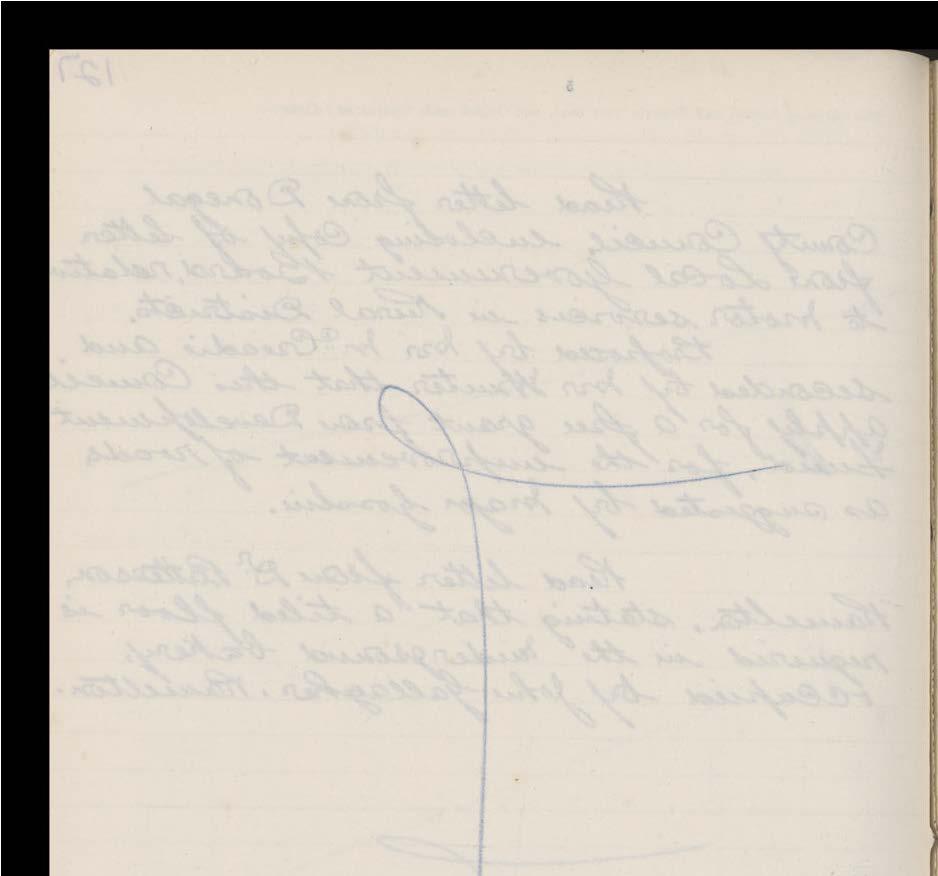 127
Read letter from Donegal
County Council, including copy of letter
from Local Government Board, relative
to motor services in Rural Districts.
Proposed by Mr McCreadie and
seconded by Mr Hunter that this Council
apply for a free grant from Development
for the improvement of roads
as suggested by Major
Read letter from Dr Patterson,
Ramelton, stating that a tiled floor is
required in the underground bakery,
occupied by John Gallagher, Ramelton.